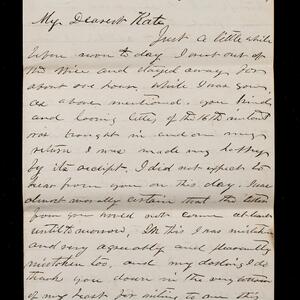 My Dearest Kate,
Just a little while
before noon to day I went out of
the Office and stayed away for
about one hour, while I was gone,
as above mentioned, your kind
and loving letter of the 16th instant
was brought in and on my
return I was made very happy
by its receipt. I did not expect to
hear from you on this day. I was
almost morally certain that the letter
from you would not come at least
until tomorrow, In this I was mistaken
and very agreeably and pleasantly
mistaken too, and my darling I do
thank you down in the very bottom
of my heart for writing to me this